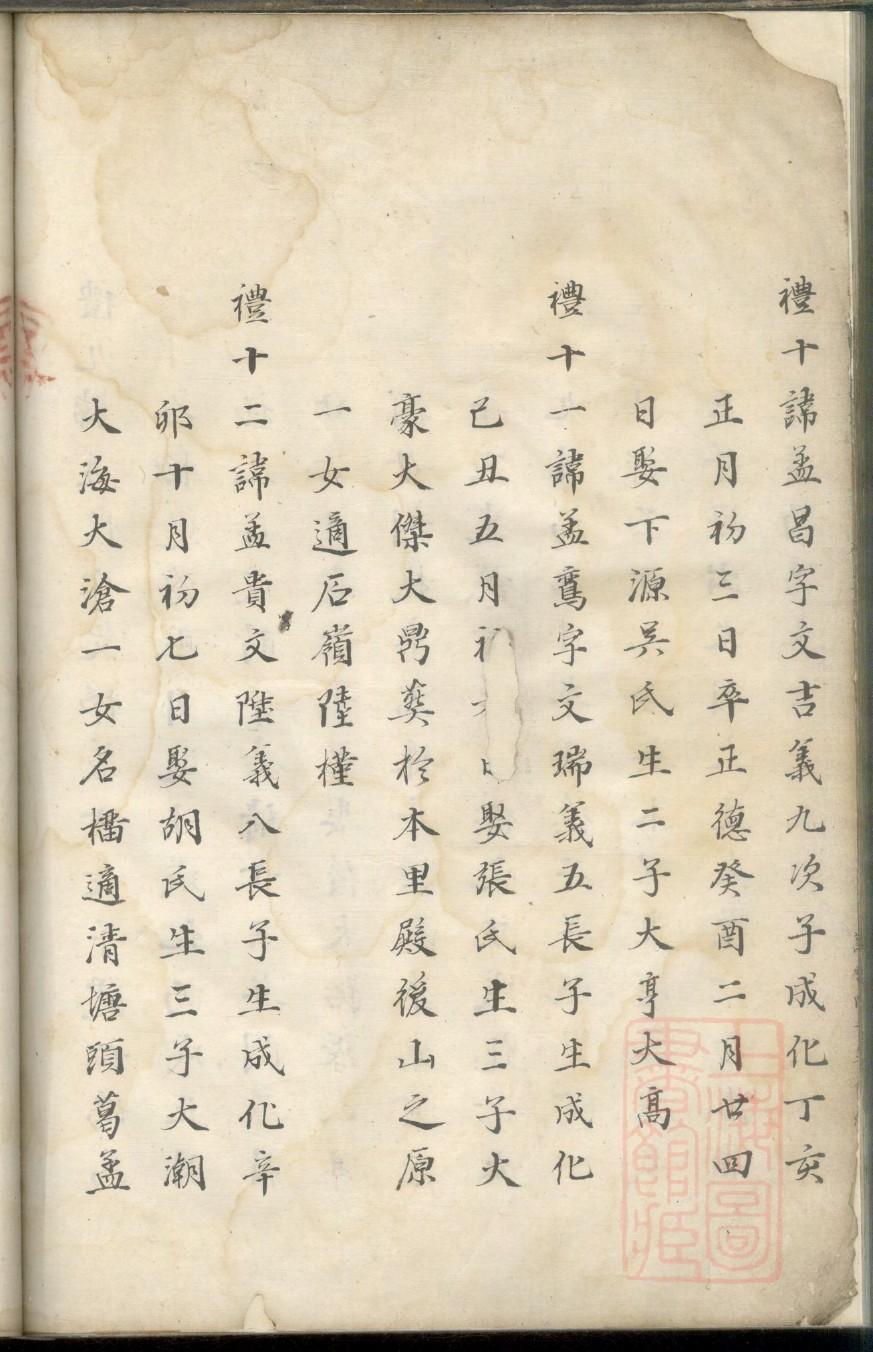 禮十諱孟昌字文吉義九次子成化丁亥
正月初三日卒正德癸酉二月廿四
日娶下源吳氏生二子大亨大髙
禮十一諱孟鸞字文瑞義五長子生成化
己丑五月初 日娶張氏生三子大
豪大傑大鼎葬於本里殿後山之原
一女適石嶺陸槿
禮十二諱孟貴文陞義八長子生成化辛
卯十月初七日娶胡氏生三子大潮
大海大滄一女名橎適清塘頭葛孟
上海圖書館藏